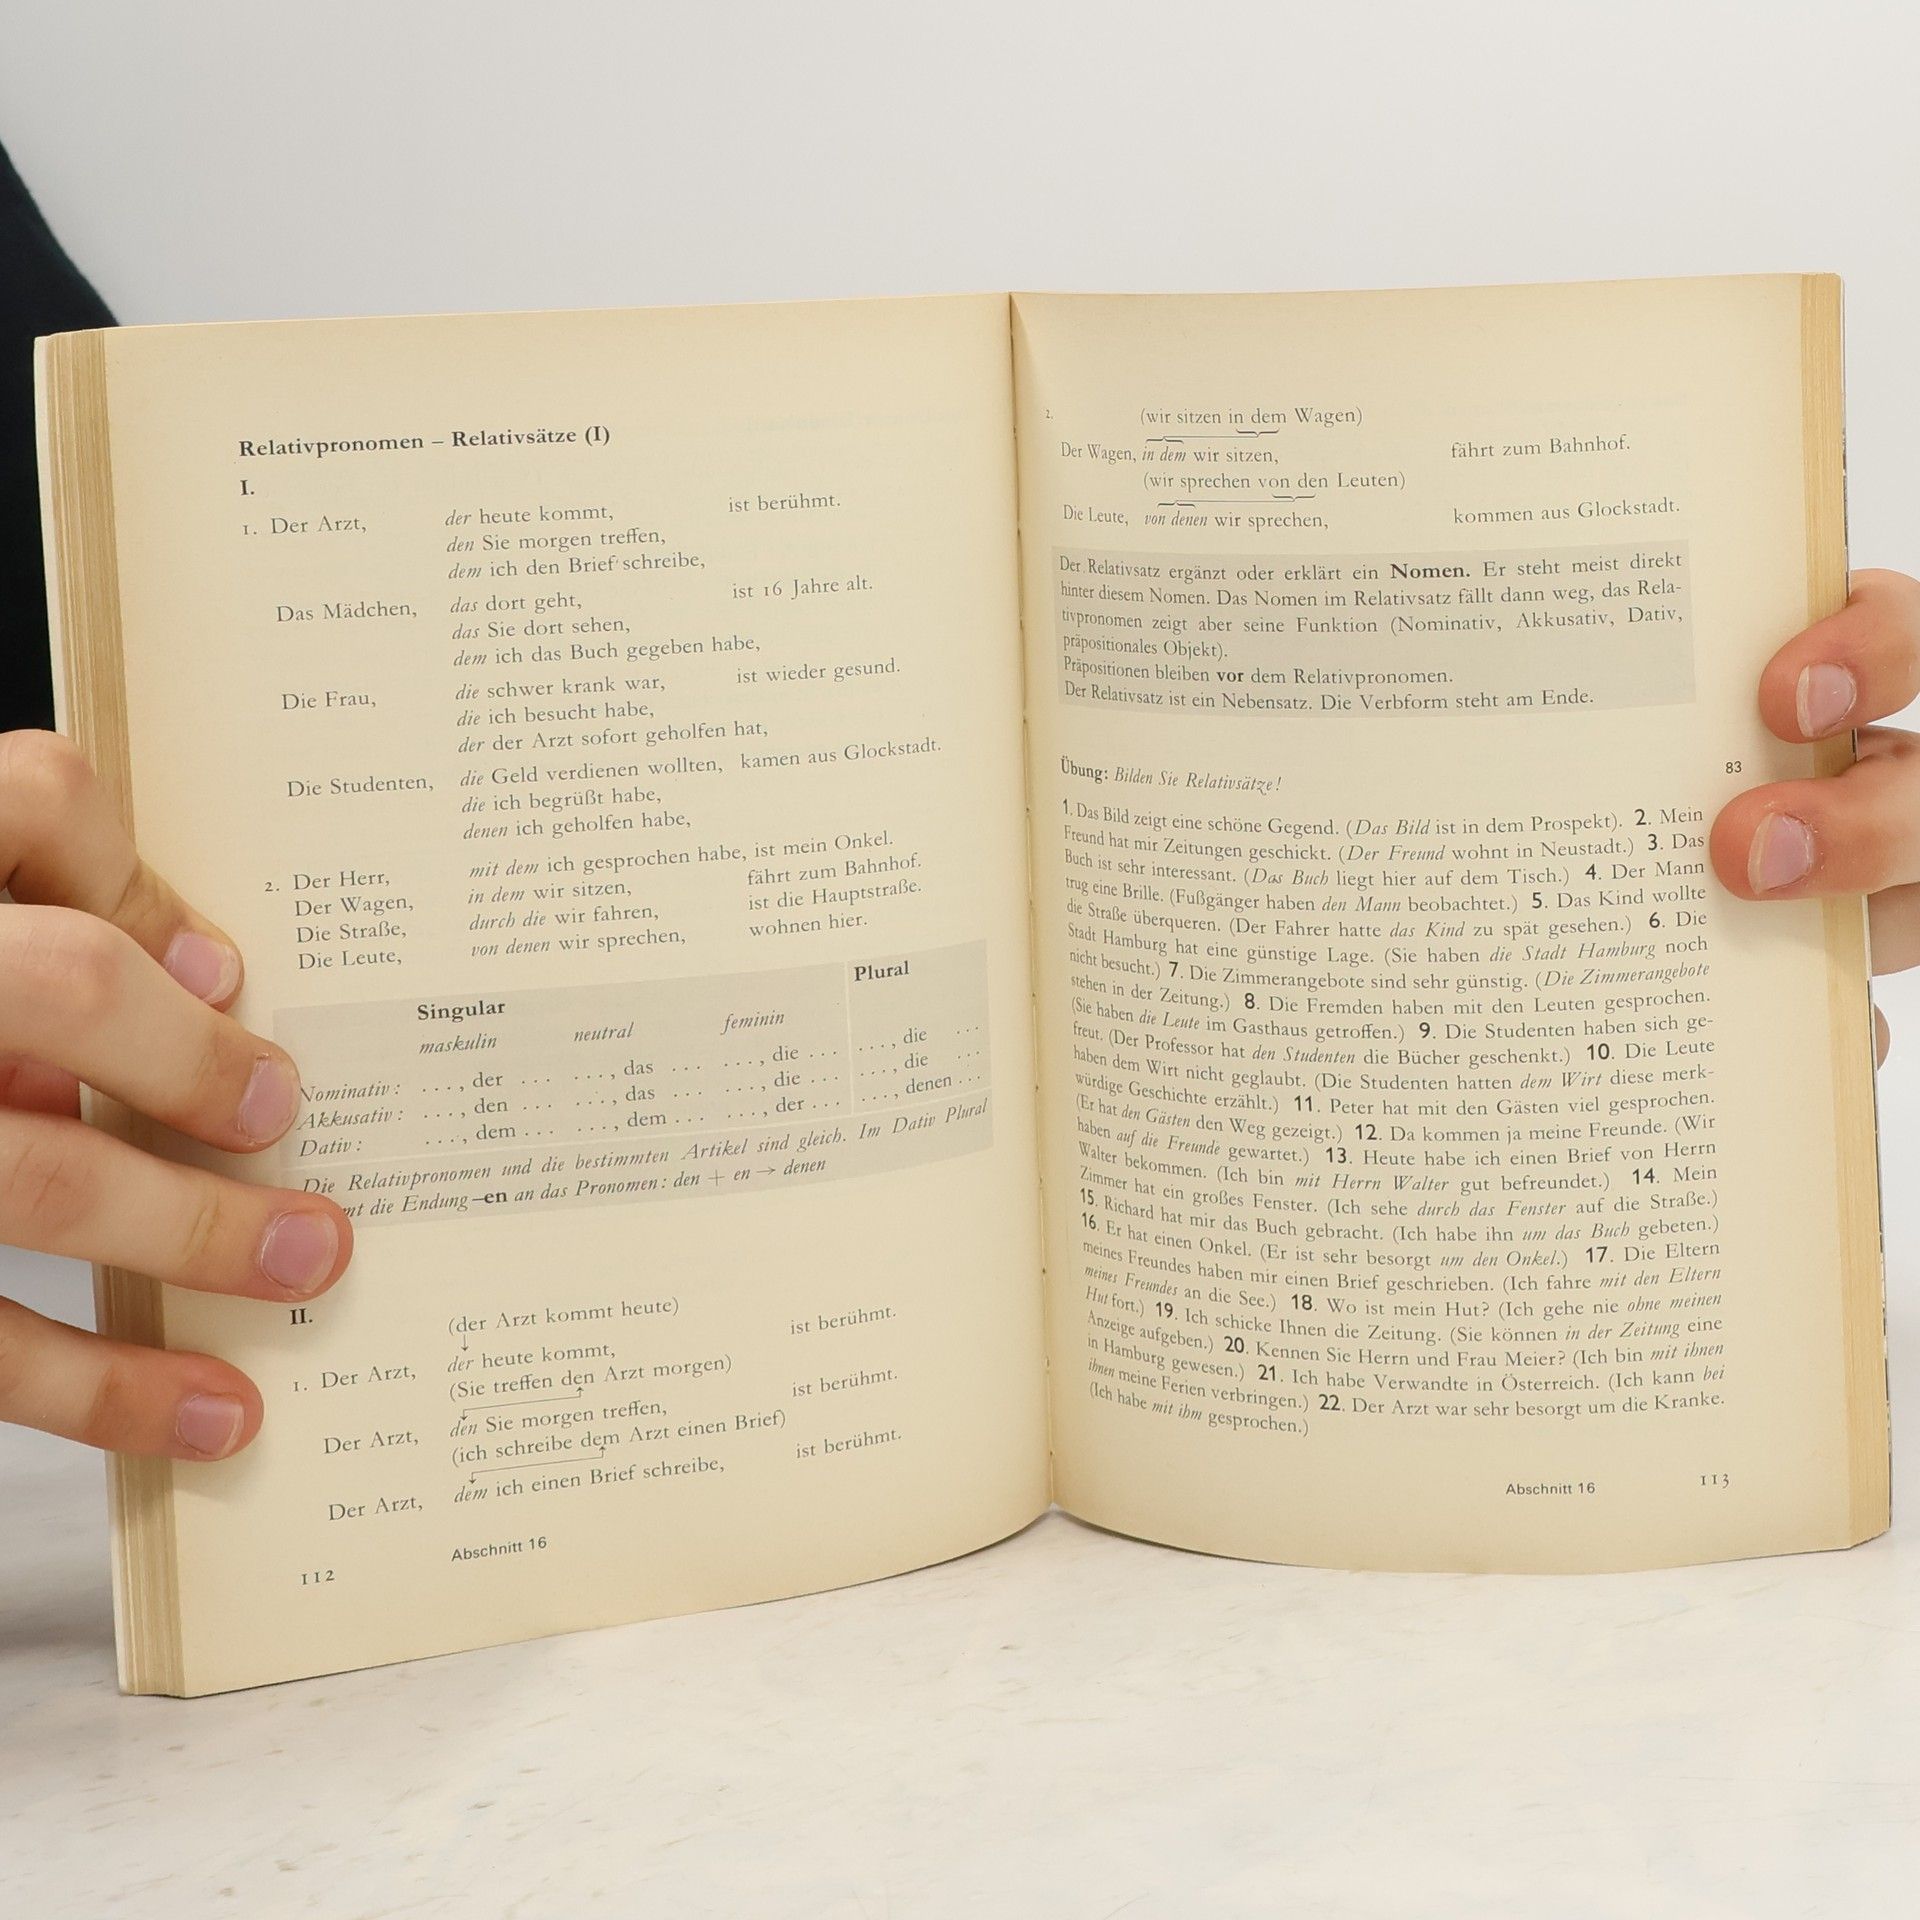 Relativpronomen – Relativsätze (I)
I.
1. Der Arzt, der heute kommt, ist berühmt.
den Sie morgen treffen,
dem ich den Brief schreibe,
Das Mädchen, das dort geht, ist 16 Jahre alt.
das Sie dort sehen,
dem ich das Buch gegeben habe,
Die Frau, die schwer krank war, ist wieder gesund.
die ich besucht habe,
der der Arzt sofort geholfen hat,
Die Studenten, die Geld verdienen wollten, kamen aus Glockstadt.
die ich begrüßt habe,
denen ich geholfen habe,
2. Der Herr, mit dem ich gesprochen habe, ist mein Onkel.
Der Wagen, in dem wir sitzen, fährt zum Bahnhof.
Die Straße, durch die wir fahren, ist die Hauptstraße.
Die Leute, von denen wir sprechen, wohnen hier.
Singular Plural
maskulin neutral feminin
Nominativ: ..., der ... ..., das ... ..., die ... ..., die ...
Akkusativ: ..., den ... ..., das ... ..., die ... ..., die ...
Dativ: ..., dem ... ..., dem ... ..., der ... ..., denen ...
Die Relativpronomen und die bestimmten Artikel sind gleich. Im Dativ Plural
die Endung –en an das Pronomen: den + en → denen
II.
(der Arzt kommt heute)
1. Der Arzt, der heute kommt, ist berühmt.
(Sie treffen den Arzt morgen)
Der Arzt, den Sie morgen treffen, ist berühmt.
(ich schreibe dem Arzt einen Brief)
Der Arzt, dem ich einen Brief schreibe, ist berühmt.
Abschnitt 16
112
2. (wir sitzen in dem Wagen)
Der Wagen, in dem wir sitzen, fährt zum Bahnhof.
(wir sprechen von den Leuten)
Die Leute, von denen wir sprechen, kommen aus Glockstadt.
Der Relativsatz ergänzt oder erklärt ein Nomen. Er steht meist direkt
hinter diesem Nomen. Das Nomen im Relativsatz fällt dann weg, das Rela-
tivpronomen zeigt aber seine Funktion (Nominativ, Akkusativ, Dativ,
präpositionales Objekt).
Präpositionen bleiben vor dem Relativpronomen.
Der Relativsatz ist ein Nebensatz. Die Verbform steht am Ende.
Übung: Bilden Sie Relativsätze! 83
1. Das Bild zeigt eine schöne Gegend. (Das Bild ist in dem Prospekt). 2. Mein
Freund hat mir Zeitungen geschickt. (Der Freund wohnt in Neustadt.) 3. Das
Buch ist sehr interessant. (Das Buch liegt hier auf dem Tisch.) 4. Der Mann
trug eine Brille. (Fußgänger haben den Mann beobachtet.) 5. Das Kind wollte
die Straße überqueren. (Der Fahrer hatte das Kind zu spät gesehen.) 6. Die
Stadt Hamburg hat eine günstige Lage. (Sie haben die Stadt Hamburg noch
nicht besucht.) 7. Die Zimmerangebote sind sehr günstig. (Die Zimmerangebote
stehen in der Zeitung.) 8. Die Fremden haben mit den Leuten gesprochen.
(Sie haben die Leute im Gasthaus getroffen.) 9. Die Studenten haben sich ge-
freut. (Der Professor hat den Studenten die Bücher geschenkt.) 10. Die Leute
haben dem Wirt nicht geglaubt. (Die Studenten hatten dem Wirt diese merk-
würdige Geschichte erzählt.) 11. Peter hat mit den Gästen viel gesprochen.
(Er hat den Gästen den Weg gezeigt.) 12. Da kommen ja meine Freunde. (Wir
haben auf die Freunde gewartet.) 13. Heute habe ich einen Brief von Herrn
Walter bekommen. (Ich bin mit Herrn Walter gut befreundet.) 14. Mein
Zimmer hat ein großes Fenster. (Ich sehe durch das Fenster auf die Straße.)
15. Richard hat mir das Buch gebracht. (Ich habe ihn um das Buch gebeten.)
16. Er hat einen Onkel. (Er ist sehr besorgt um den Onkel.) 17. Die Eltern
meines Freundes haben mir einen Brief geschrieben. (Ich fahre mit den Eltern
meines Freundes an die See.) 18. Wo ist mein Hut? (Ich gehe nie ohne meinen
Hut fort.) 19. Ich schicke Ihnen die Zeitung. (Sie können in der Zeitung eine
Anzeige aufgeben.) 20. Kennen Sie Herrn und Frau Meier? (Ich bin mit ihnen
in Hamburg gewesen.) 21. Ich habe Verwandte in Österreich. (Ich kann bei
ihnen meine Ferien verbringen.) 22. Der Arzt war sehr besorgt um die Kranke.
(Ich habe mit ihm gesprochen.)
Abschnitt 16 113